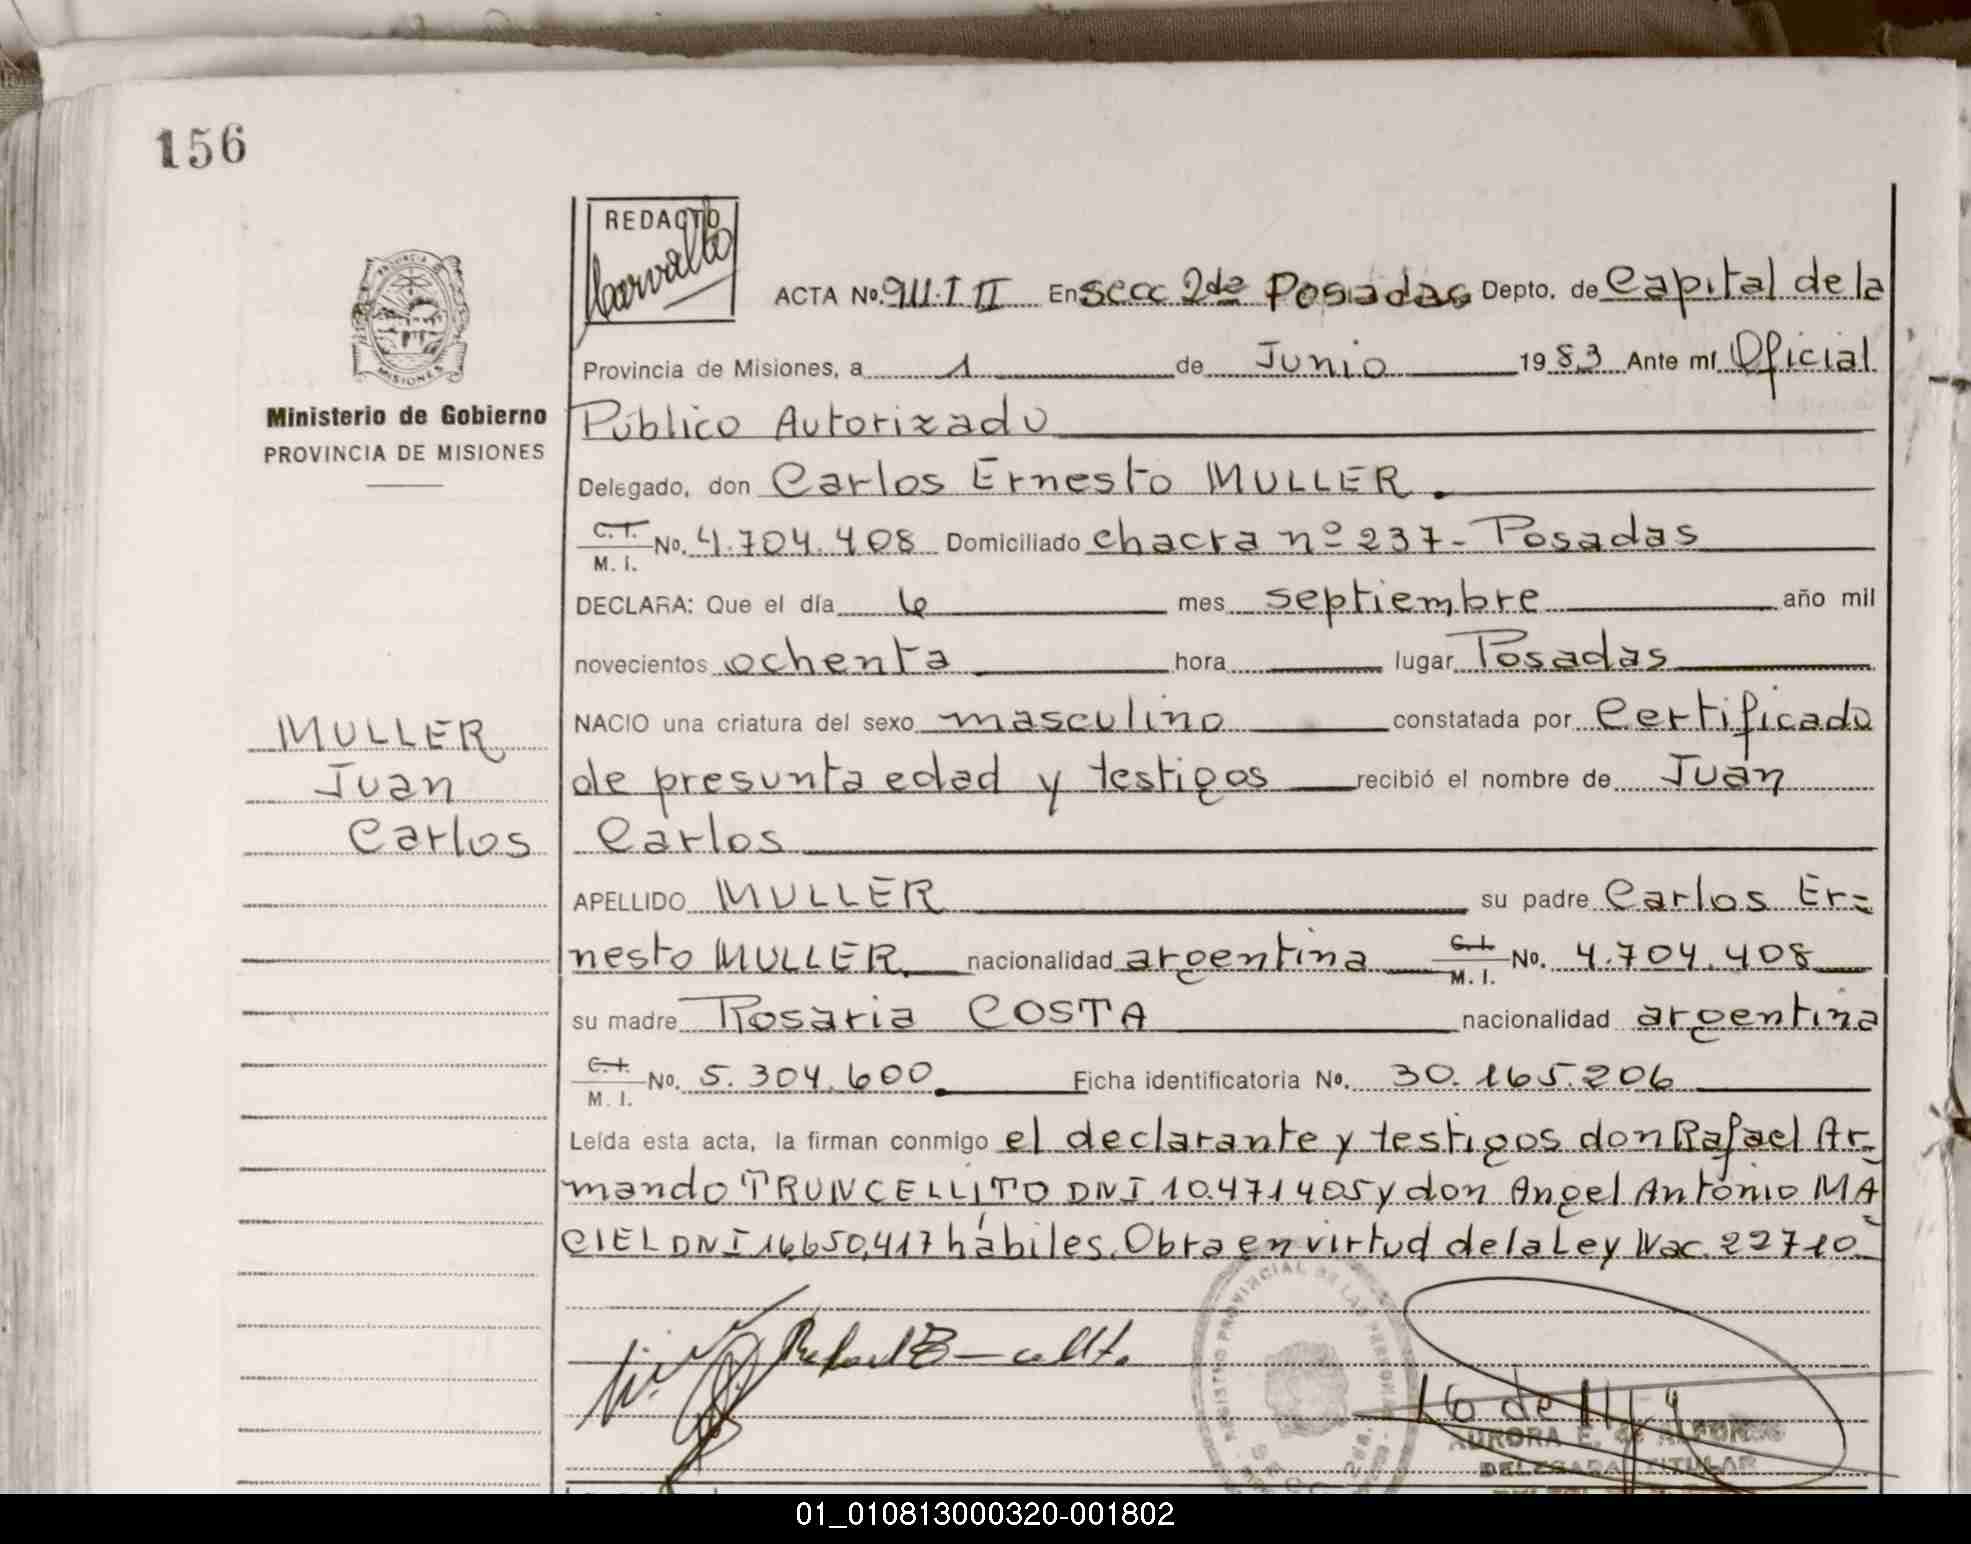 156
REDACTO
Carvallo
PROVINCIA DE
MISIONES
Ministerio de Gobierno
PROVINCIA DE MISIONES
ACTA No. 911.T II En secc 2da Posadas Depto. de Capital de la
Provincia de Misiones, a 1 de Junio 1983 Ante mí Oficial
Público Autorizado
Delegado, don Carlos Ernesto MULLER.
C.I. M. I. No. 4.704.408 Domiciliado chacra nº 237- Posadas
DECLARA: Que el día 6 mes septiembre año mil
novecientos ochenta hora lugar Posadas
NACIO una criatura del sexo masculino constatada por Certificado
de presunta edad y testigos recibió el nombre de Juan
Carlos
MULLER
Juan
Carlos
APELLIDO MULLER su padre Carlos Er=
nesto MULLER. nacionalidad argentina C.I. M. I. No. 4.704.408
su madre Rosaria COSTA nacionalidad argentina
C.I. M. I. No. 5.304.600. Ficha identificatoria No. 30.165.206
Leída esta acta, la firman conmigo el declarante y testigos don Rafael Ar-
mando TRUNCELLITO DNI 10.471405 y don Angel Antonio MA
CIEL DNI 16.650.417 hábiles. Obra en virtud de la Ley Nac. 22710
REGISTRO PROVINCIAL DE LAS PERSONAS
AURORA E. de
DELEGADA TITULAR
01_010813000320-001802